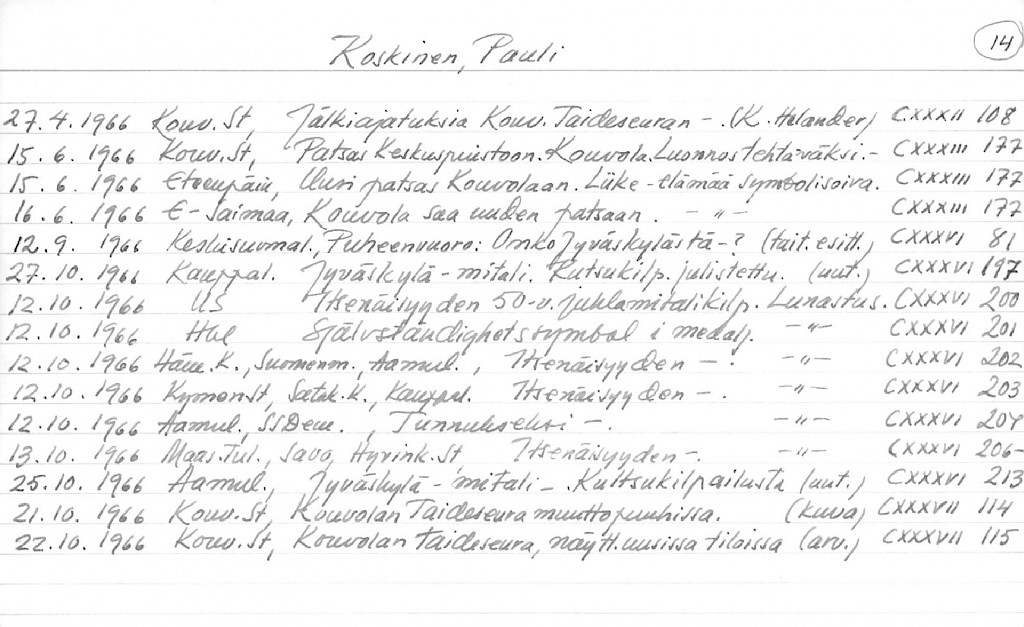 14
Koskinen, Pauli
27.4.1966 Kouv.St, Jälkiajatuksia Kouv.Taideseuran -. (K. Helander) CXXXII 108
15.6.1966 Kouv.St, Patsas Keskuspuistoon. Kouvola. Luonnos tehtäväksi.- CXXXIII 177
15.6.1966 Eteenpäin, Uusi patsas Kouvolaan. Liike-elämää symbolisoiva. CXXXIII 177
16.6.1966 E-Saimaa, Kouvola saa uuden patsaan. -"- CXXXIII 177
12.9.1966 Keskisuomal., Puheenvuoro: Onko Jyväskylästä-? (tait.esitt.) CXXXVI 81
27.10.1966 Kauppal. Jyväskylä-mitali. Kutsukilp. julistettu. (uut.) CXXXVI 197
12.10.1966 US Itsenäisyyden 50-v. juhlamitalikilp. Lunastus. CXXXVI 200
12.10.1966 Hbl Självständighetssymbol i medalj. -"- CXXXVI 201
12.10.1966 Häm.K., Suomenm., Aamul., Itsenäisyyden -. -"- CXXXVI 202
12.10.1966 Kymen St, Satak.K., Kauppal. Itsenäisyyden -. -"- CXXXVI 203
12.10.1966 Aamul., SSDem., Tunnukseksi -. -"- CXXXVI 204
13.10.1966 Maas.Tul., Savo, Hyvink.St Itsenäisyyden -. -"- CXXXVI 206-
25.10.1966 Aamul., Jyväskylä-mitali-. Kultsukilpailusta (uut.) CXXXVI 213
21.10.1966 Kouv.St, Kouvolan Taideseura muuttopuuhissa. (kuva) CXXXVII 114
22.10.1966 Kouv.St, Kouvolan taideseura, näytt. uusissa tiloissa (arv.) CXXXVII 115